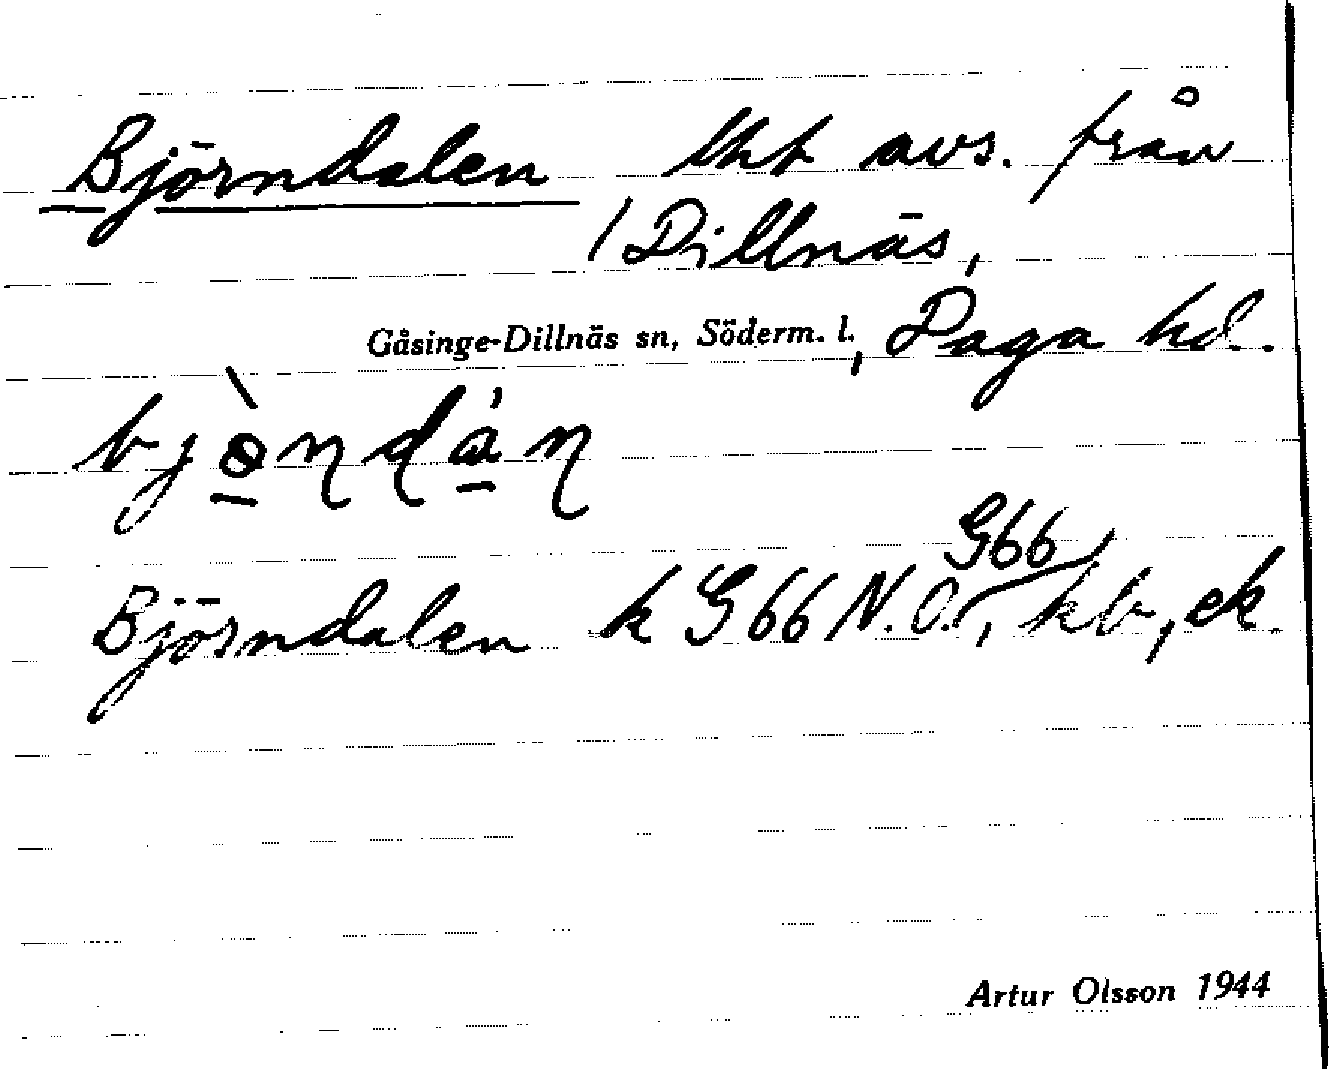 Björndalen lht avs. från
/ Dillnäs,
Gåsinge-Dillnäs sn, Söderm. l., Daga hd.
Björndalen k G66 N.O., G66 kb, ek.
Artur Olsson 1944